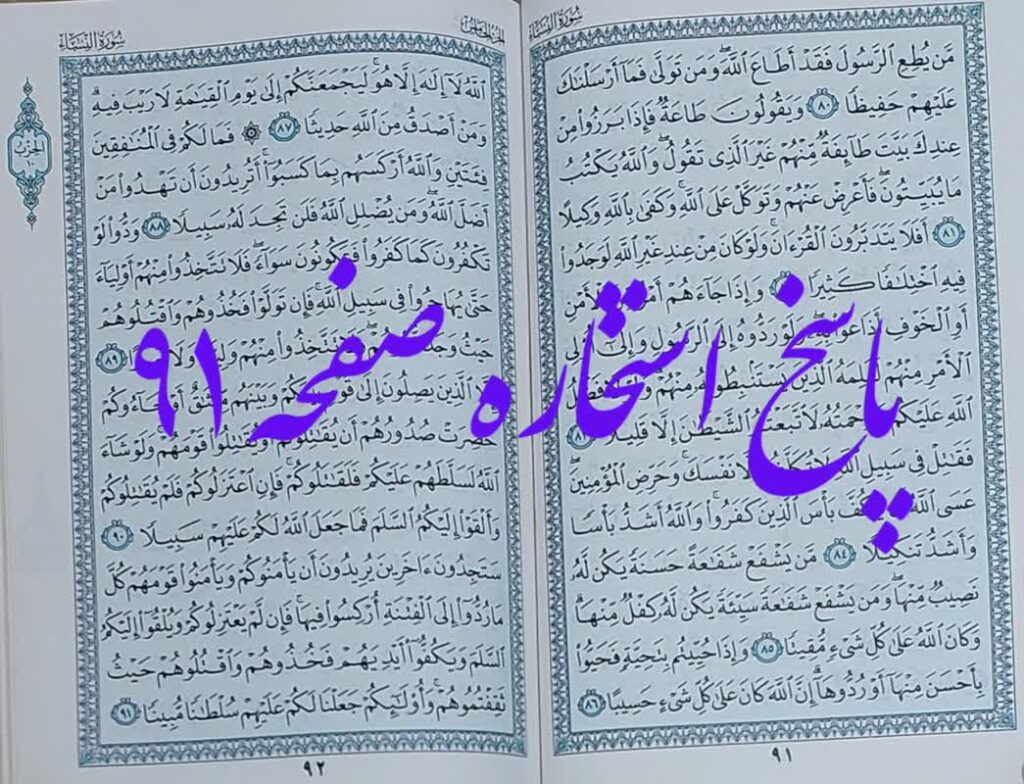 سُورَةُ النِّسَاءِ
مَّن يُطِعِ ٱلرَّسُولَ فَقَدْ أَطَاعَ ٱللَّهَ ۖ وَمَن تَوَلَّىٰ فَمَآ أَرْسَلْنَـٰكَ
عَلَيْهِمْ حَفِيظًا ٨٠ وَيَقُولُونَ طَاعَةٌ فَإِذَا بَرَزُوا۟ مِنْ
عِندِكَ بَيَّتَ طَآئِفَةٌ مِّنْهُمْ غَيْرَ ٱلَّذِى تَقُولُ ۖ وَٱللَّهُ يَكْتُبُ
مَا يُبَيِّتُونَ ۖ فَأَعْرِضْ عَنْهُمْ وَتَوَكَّلْ عَلَى ٱللَّهِ ۚ وَكَفَىٰ بِٱللَّهِ وَكِيلًا
٨١ أَفَلَا يَتَدَبَّرُونَ ٱلْقُرْءَانَ ۚ وَلَوْ كَانَ مِنْ عِندِ غَيْرِ ٱللَّهِ لَوَجَدُوا۟
فِيهِ ٱخْتِلَـٰفًا كَثِيرًا وَإِذَا جَآءَهُمْ أَمْرٌ ٱلْأَمْنِ
أَوِ ٱلْخَوْفِ أَذَاعُوا۟ بِهِۦ ۖ وَلَوْ رَدُّوهُ إِلَى ٱلرَّسُولِ وَإِلَىٰٓ أُو۟لِى
ٱلْأَمْرِ مِنْهُمْ لَعَلِمَهُ ٱلَّذِينَ يَسْتَنۢبِطُونَهُۥ مِنْهُمْ ۗ وَلَوْلَا فَضْلُ
ٱللَّهِ عَلَيْكُمْ وَرَحْمَتُهُۥ لَٱتَّبَعْتُمُ ٱلشَّيْطَـٰنَ إِلَّا قَلِيلًا ٨٣
فَقَـٰتِلْ فِى سَبِيلِ ٱللَّهِ لَا تُكَلَّفُ إِلَّا نَفْسَكَ ۚ وَحَرِّضِ ٱلْمُؤْمِنِينَ ۖ
عَسَى ٱللَّهُ أَن يَكُفَّ بَأْسَ ٱلَّذِينَ كَفَرُوا۟ ۚ وَٱللَّهُ أَشَدُّ بَأْسًا
وَأَشَدُّ تَنكِيلًا ٨٤ مَّن يَشْفَعْ شَفَـٰعَةً حَسَنَةً يَكُن لَّهُۥ
نَصِيبٌ مِّنْهَا ۖ وَمَن يَشْفَعْ شَفَـٰعَةً سَيِّئَةً يَكُن لَّهُۥ كِفْلٌ مِّنْهَا ۗ
وَكَانَ ٱللَّهُ عَلَىٰ كُلِّ شَىْءٍ مُّقِيتًا ٨٥ وَإِذَا حُيِّيتُم بِتَحِيَّةٍ فَحَيُّوا۟
بِأَحْسَنَ مِنْهَآ أَوْ رُدُّوهَآ ۗ إِنَّ ٱللَّهَ كَانَ عَلَىٰ كُلِّ شَىْءٍ حَسِيبًا ٨٦
٩١
سُورَةُ النِّسَاءِ
ٱللَّهُ لَآ إِلَـٰهَ إِلَّا هُوَ ۚ لَيَجْمَعَنَّكُمْ إِلَىٰ يَوْمِ ٱلْقِيَـٰمَةِ لَا رَيْبَ فِيهِ ۗ
وَمَنْ أَصْدَقُ مِنَ ٱللَّهِ حَدِيثًا ٨٧ ۞ فَمَا لَكُمْ فِى ٱلْمُنَـٰفِقِينَ
فِئَتَيْنِ وَٱللَّهُ أَرْكَسَهُم بِمَا كَسَبُوٓا۟ ۚ أَتُرِيدُونَ أَن تَهْدُوا۟ مَنْ
أَضَلَّ ٱللَّهُ ۖ وَمَن يُضْلِلِ ٱللَّهُ فَلَن تَجِدَ لَهُۥ سَبِيلًا ٨٨ وَدُّوا۟ لَوْ
تَكْفُرُونَ كَمَا كَفَرُوا۟ فَتَكُونُونَ سَوَآءً ۖ فَلَا تَتَّخِذُوا۟ مِنْهُمْ أَوْلِيَآءَ
حَتَّىٰ يُهَاجِرُوا۟ فِى سَبِيلِ ٱللَّهِ ۚ فَإِن تَوَلَّوْا۟ فَخُذُوهُمْ وَٱقْتُلُوهُمْ
حَيْثُ وَجَدتُّمُوهُمْ ۖ وَلَا تَتَّخِذُوا۟ مِنْهُمْ وَلِيًّا وَلَا ٨٩
ٱلَّذِينَ يَصِلُونَ إِلَىٰ قَوْمٍۭ بَيْنَكُمْ وَبَيْنَهُم مِّيثَـٰقٌ أَوْ جَآءُوكُمْ
حَصِرَتْ صُدُورُهُمْ أَن يُقَـٰتِلُوكُمْ أَوْ يُقَـٰتِلُوا۟ قَوْمَهُمْ ۚ وَلَوْ شَآءَ
ٱللَّهُ لَسَلَّطَهُمْ عَلَيْكُمْ فَلَقَـٰتَلُوكُمْ ۚ فَإِنِ ٱعْتَزَلُوكُمْ فَلَمْ يُقَـٰتِلُوكُمْ
وَأَلْقَوْا۟ إِلَيْكُمُ ٱلسَّلَمَ فَمَا جَعَلَ ٱللَّهُ لَكُمْ عَلَيْهِمْ سَبِيلًا ٩٠
سَتَجِدُونَ ءَاخَرِينَ يُرِيدُونَ أَن يَأْمَنُوكُمْ وَيَأْمَنُوا۟ قَوْمَهُمْ كُلَّ
مَا رُدُّوٓا۟ إِلَى ٱلْفِتْنَةِ أُرْكِسُوا۟ فِيهَا ۚ فَإِن لَّمْ يَعْتَزِلُوكُمْ وَيُلْقُوٓا۟ إِلَيْكُمُ
ٱلسَّلَمَ وَيَكُفُّوٓا۟ أَيْدِيَهُمْ فَخُذُوهُمْ وَٱقْتُلُوهُمْ حَيْثُ
ثَقِفْتُمُوهُمْ ۚ وَأُو۟لَـٰٓئِكُمْ جَعَلْنَا لَكُمْ عَلَيْهِمْ سُلْطَـٰنًا مُّبِينًا ٩١
٩٢
الحزب
١٠
پاسخ استخاره صفحه ۹۱